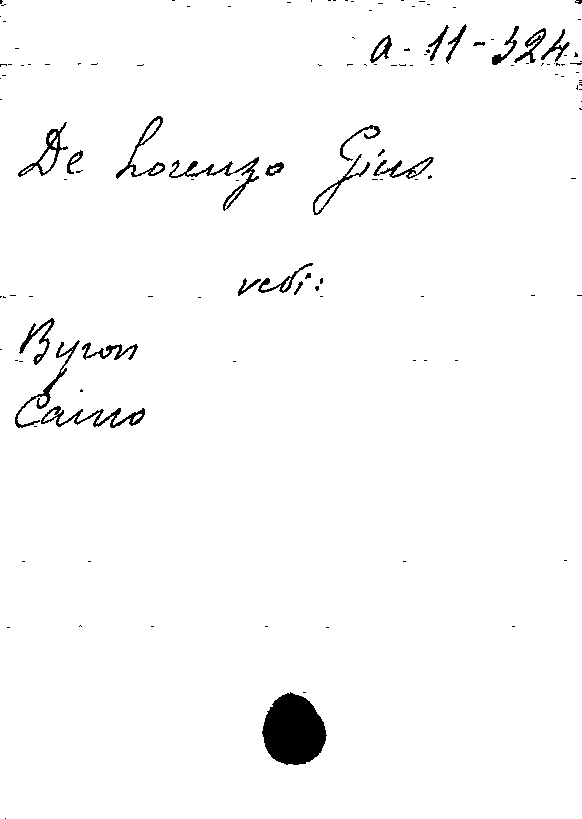 a-11-324.
De Lorenzo Gius.
vedi:
Byron
Caino